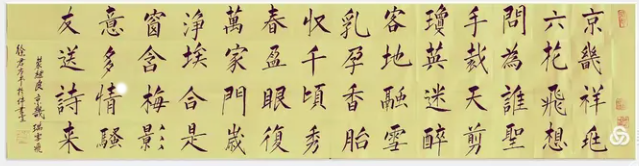 京畿祥
六花飛想
問為誰聖
手裁天剪
瓊英迷醉
客地融雪
乳孕香胎
収千頃秀
春盈眼復
萬家門歲
淨埃合是
窗含梅景
意多情騷
友送詩来
京畿瑞雪